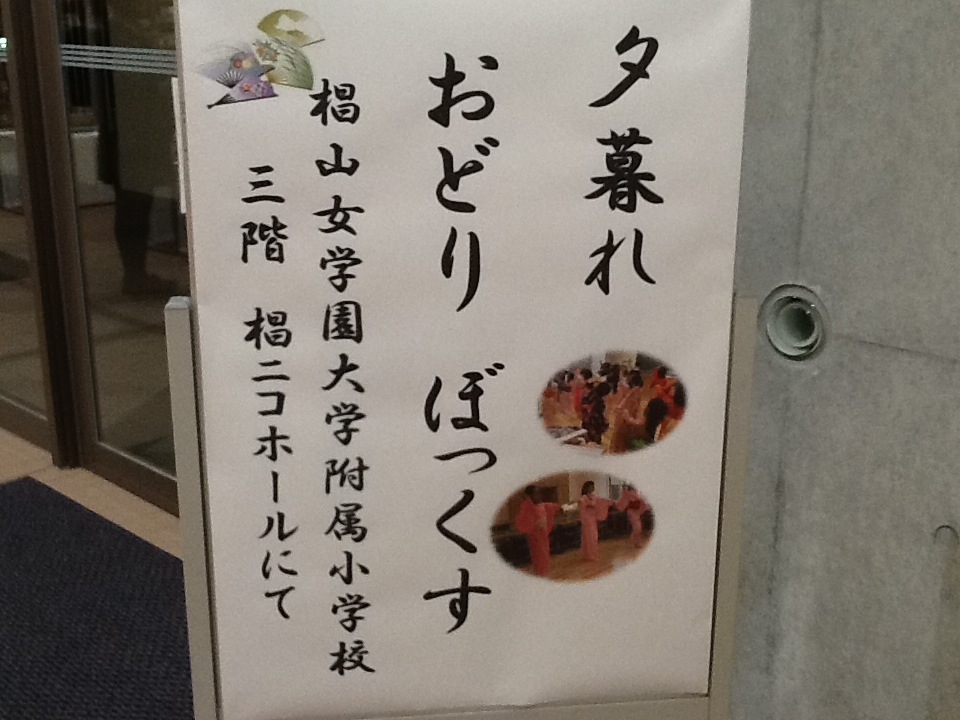 夕暮れ
おどり ぼっくす
椙山女学園大学附属小学校
三階 椙ニコホールにて